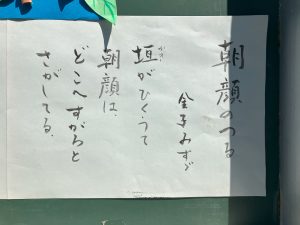 朝顔のつる
金子みすゞ
垣がひくうて
朝顔は、
どこへすがろと
さがしてる。